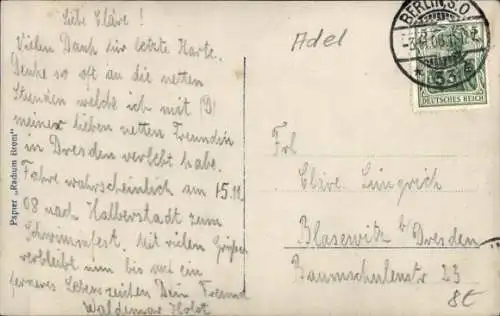 Liebe Cläre!
Vielen Dank für letzte Karte.
Denke so oft an die netten
Stunden welche ich mit D'
meiner lieben netten Freundin
in Dresden verlebt habe.
Fahre wahrscheinlich am 15.11.
08 nach Halberstadt zum
Schwimmfest. Mit vielen Grüßen
verbleibt nun bis auf ein
ferneres Lebenszeichen Dein Freund
Waldemar Holst
Adel
BERLIN S.O.
33
DEUTSCHES REICH
Frl
Cläre Lingreich
Blasewitz b/Dresden
Baumschulenstr 23
8£
Papier „Radium Brom"